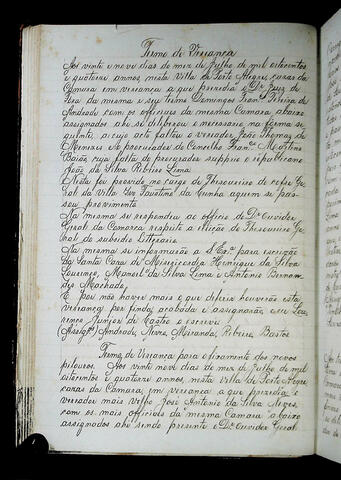 Termo de Veriança
Aos vinte e nove dias do mez de Julho de mil oitocentos
e quatorze annos, nesta Villa de Porto Alegre, cazas da
Camara em veriança a que prezidio o Dr. Juiz de
Fora da mesma e seu termo Domingos Franco Pereira de
Andrade com os officiais da mesma Camara, abaixo
assignados ahi se diferiou o necessario na forma se
guinte, a cujo acto faltou o vereador João Thomaz de
Menezes e o procurador do Conselho Franco Martins
Baião cuja falta do procurador suppre o republicano
João da Silva Ribeiro Lima
Nesta foi provido no cargo de Thezoureiro do cofre Ge
ral da Villa Ser Faustino da Cunha a quem se pas
sou provimento
Na mesma se respondeu ao officio do Dr. Ouvidor
Geral da Comarca respeito a eleição de Thezoureiro Ge
ral do subsidio Litterario
Na mesma se informação a S. Exa para isenção
da Santa Caza de Mizericordia Henrique da Silva
Loureiro, Manoel da Silva Lima e Antonio Bernar
des Machado,
E por não haver mais o que diferir houverão esta
veriança por finda, acabada e assignarão, eu Lou
renço Junior de Castro o escrevi
Assignos Andrade, Neves, Miranda, Ribeiro, Bastos
Termo de Veriança para o firamento dos novos
pilouros. Aos vinte nove dias do mez de Julho de mil
oitocentos e quatorze annos, nesta Villa de Porto Alegre
cazas da Camara, em veriança a que prezidia o
vereador mais velho José Antonio da Silva Neves,
com os mais officiais da mesma Camara abaixo
assignados ahi sendo presente o Dr. Ouvidor Geral